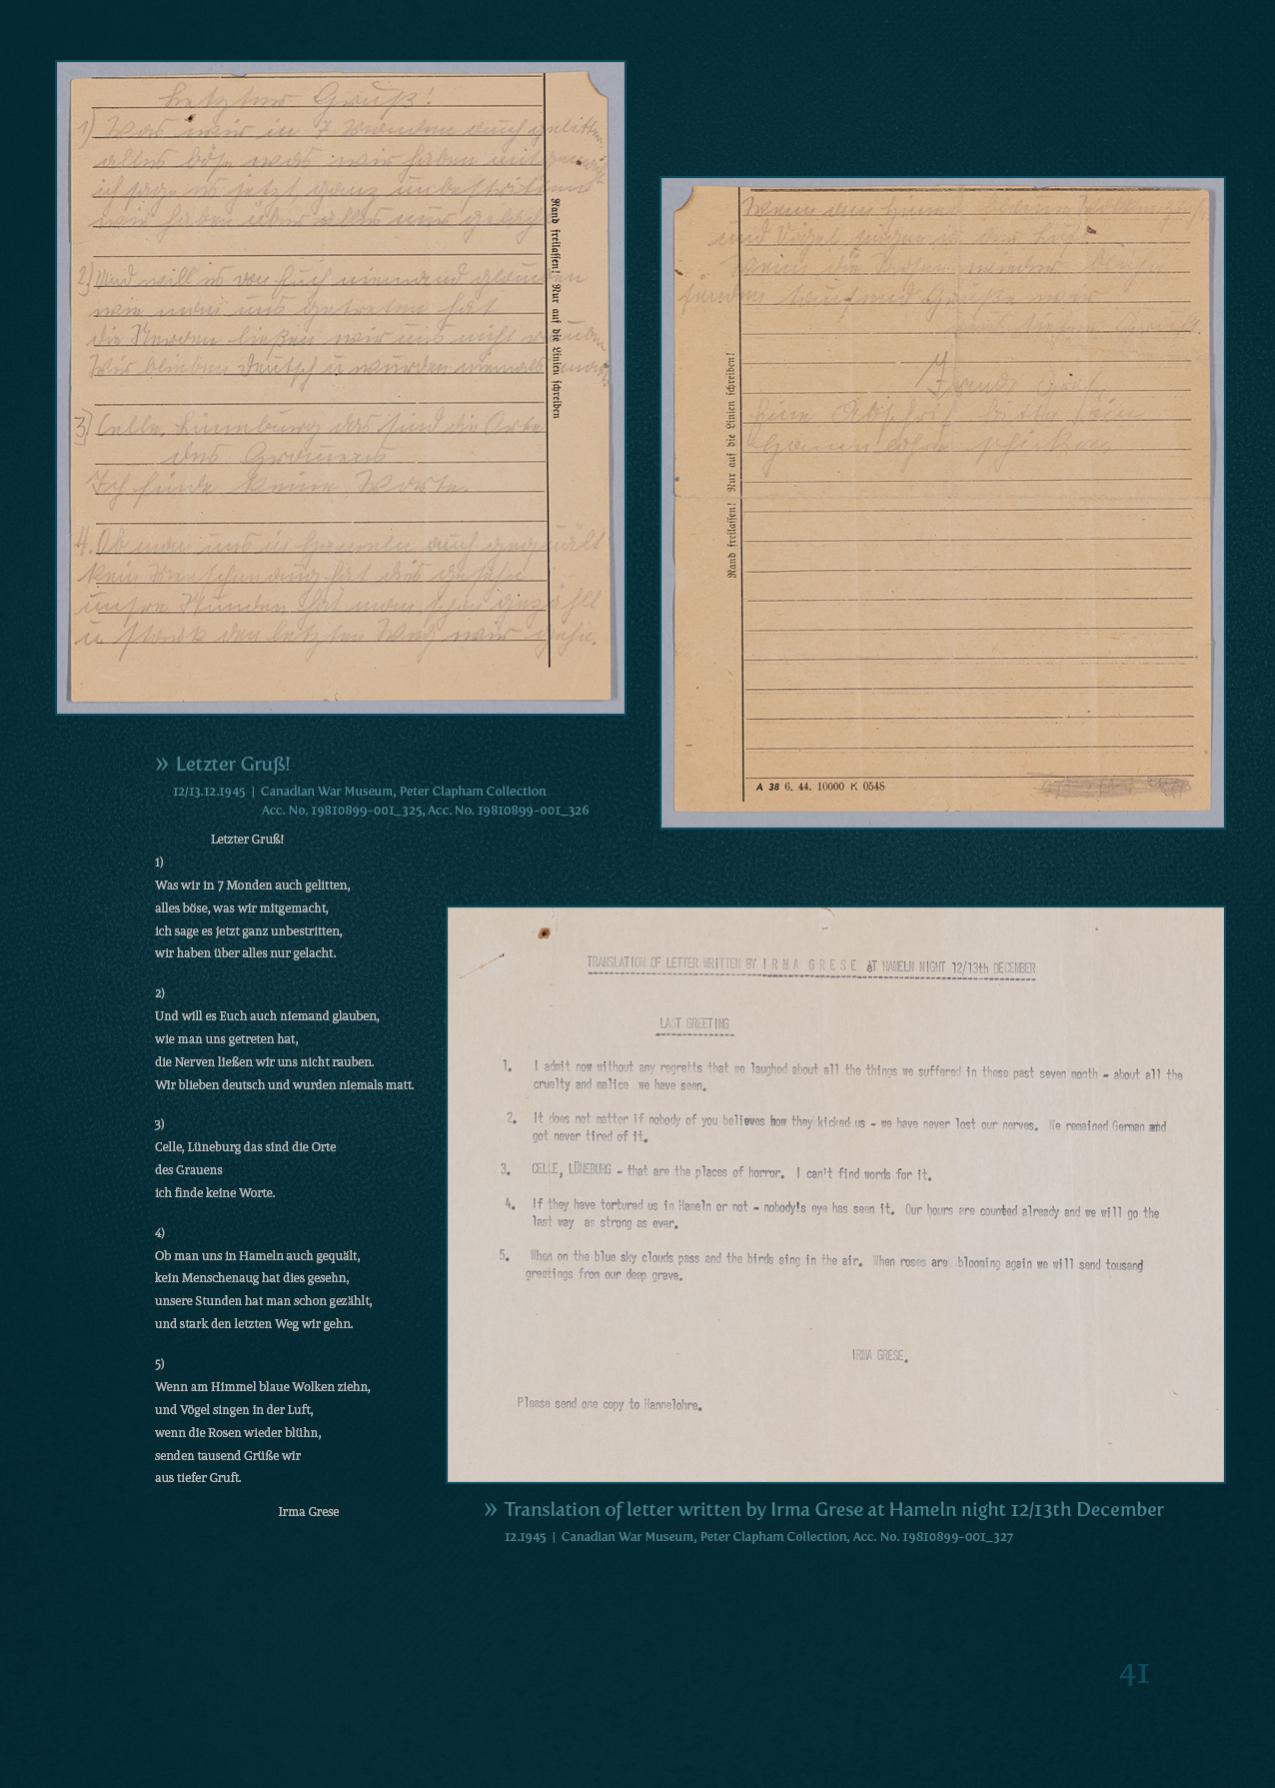 Letzter Gruß!
1) Was wir in 7 Monden auch gelitten,
alles böse was wir haben mitgemacht
ich sage es jetzt, ganz unbestritten
wir haben über alles nur gelacht
2) Und will es von Euch niemand glauben
wie man uns getreten hat
die Nerven ließen wir uns nicht rauben
Wir blieben deutsch u wurden niemals matt
3) Celle, Lüneburg das sind die Orte
des Grauens
Ich finde keine Worte.
4. Ob man uns in Hameln auch gequält
kein Menschenaug hat dies gesehn
unsre Stunden hat man schon gezählt
u stark den letzten Weg wir gehn.
Rand freilassen! Nur auf die Linien schreiben
Wenn am Himmel
und Vögel singen in der Luft
wenn die Rosen wieder blühn
senden tausend Grüße wir
aus tiefer Gruft.
Irma Grese
Eine Abschrift bitte
schicken
Rand freilassen! Nur auf die Linien schreiben!
A 38 6. 44. 10000 K 0548
» Letzter Gruß!
12/13.12.1945 | Canadian War Museum, Peter Clapham Collection
Acc. No. 19810899-001_325, Acc. No. 19810899-001_326
Letzter Gruß!
1)
Was wir in 7 Monden auch gelitten,
alles böse, was wir mitgemacht,
ich sage es jetzt ganz unbestritten,
wir haben über alles nur gelacht.
2)
Und will es Euch auch niemand glauben,
wie man uns getreten hat,
die Nerven ließen wir uns nicht rauben.
Wir blieben deutsch und wurden niemals matt.
3)
Celle, Lüneburg das sind die Orte
des Grauens
ich finde keine Worte.
4)
Ob man uns in Hameln auch gequält,
kein Menschenaug hat dies gesehn,
unsere Stunden hat man schon gezählt,
und stark den letzten Weg wir gehn.
5)
Wenn am Himmel blaue Wolken ziehn,
und Vögel singen in der Luft,
wenn die Rosen wieder blühn,
senden tausend Grüße wir
aus tiefer Gruft.
Irma Grese
TRANSLATION OF LETTER WRITTEN BY I R M A G R E S E AT HAMELN NIGHT 12/13th DECEMBER
LAST GREETING
1. I admit now without any regretts that we laughed about all the things we suffered in these past seven month - about all the
cruelty and malice we have seen.
2. It does not matter if nobody of you believes how they kicked us - we have never lost our nerves. We remained German and
got never tired of it.
3. CELLE, LÜNEBURG - that are the places of horror. I can't find words for it.
4. If they have tortured us in Hameln or not - nobody's eye has seen it. Our hours are counted already and we will go the
last way as strong as ever.
5. When on the blue sky clouds pass and the birds sing in the air. When roses are blooming again we will send tousand
greetings from our deep grave.
IRMA GRESE.
Please send one copy to Hannelohre.
» Translation of letter written by Irma Grese at Hameln night 12/13th December
12.1945 | Canadian War Museum, Peter Clapham Collection, Acc. No. 19810899-001_327
41